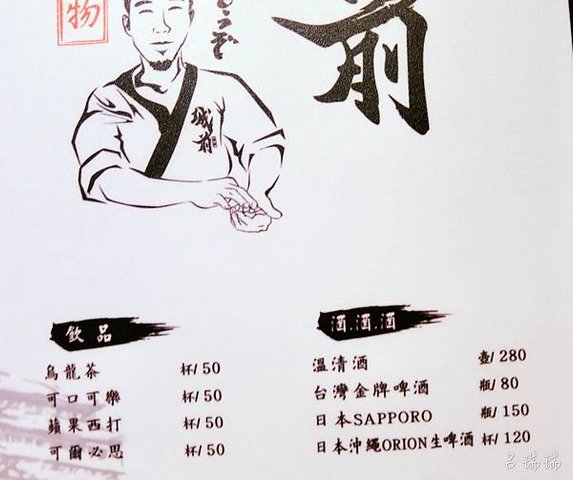 物
どうぞ
前
城前
飲品
烏龍茶 杯/50
可口可樂 杯/50
蘋果西打 杯/50
可爾必思 杯/50
酒.酒.酒
溫清酒 壺/280
台灣金牌啤酒 瓶/80
日本SAPPORO 瓶/150
日本沖繩ORION生啤酒 杯/120
呂瑞瑞